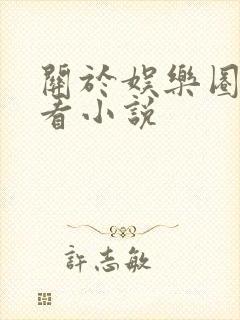 關於娛樂圈
看小說
許志敏